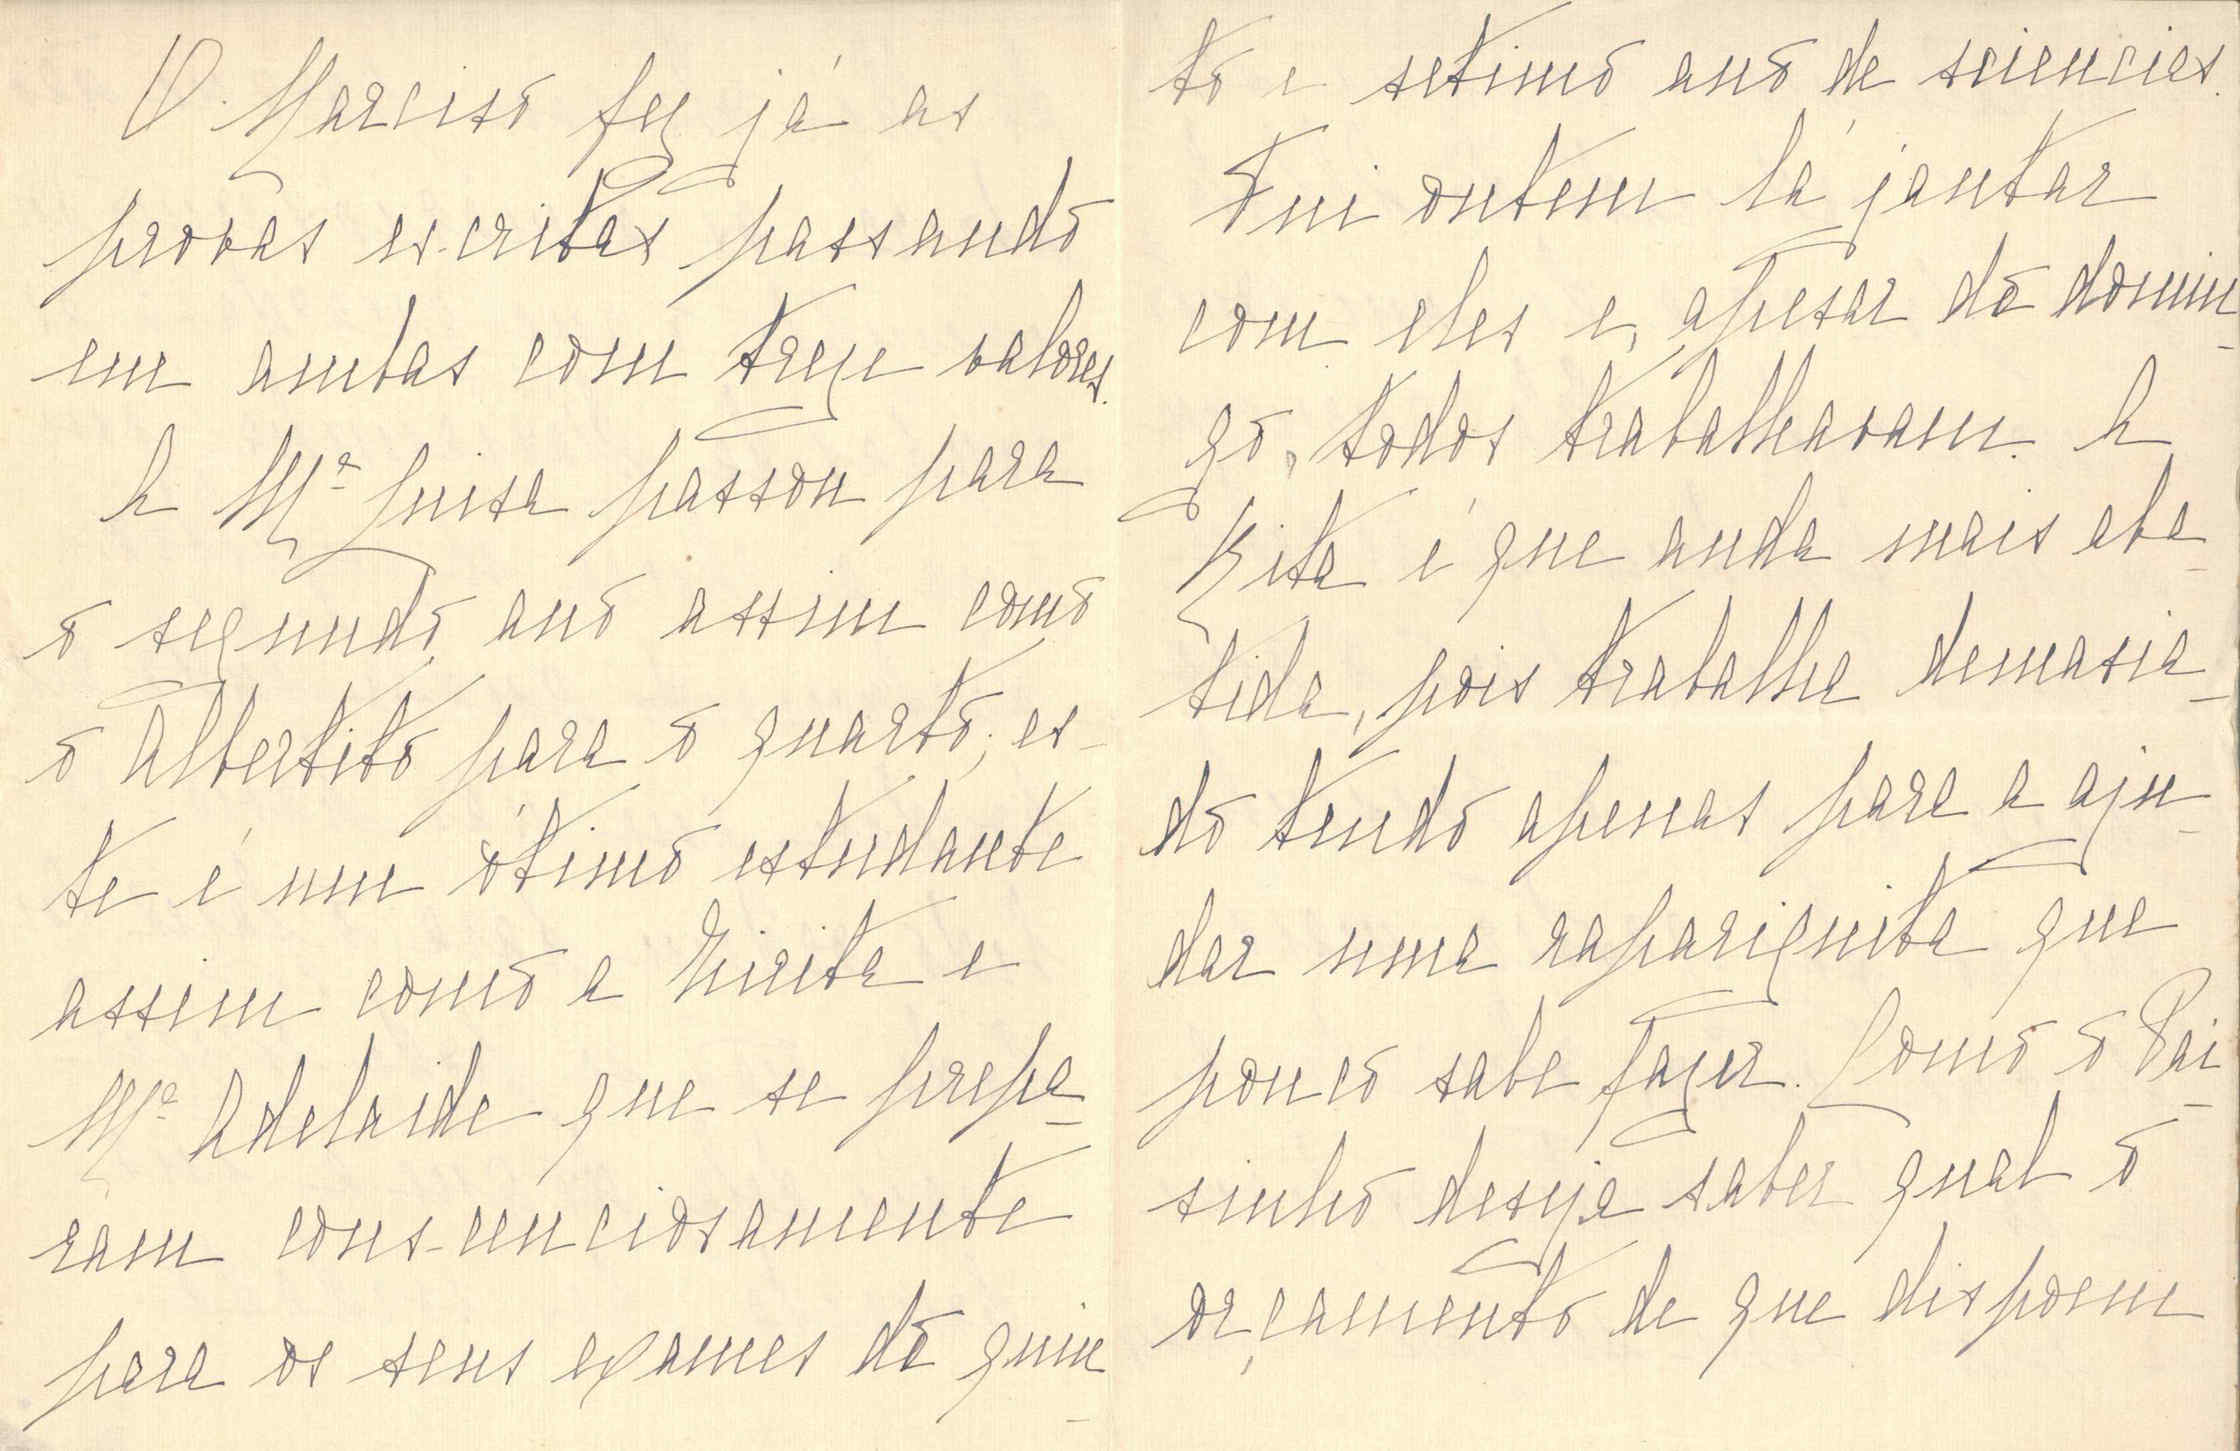 O Narciso fez já as
provas escritas passando
em ambas com treze valores.
A Mª Luisa passou para
o segundo ano assim como
o Albertito para o quarto; es-
te é um ótimo estudante
assim como a Ririta e
Mª Adelaide que se prepa-
ram conscenciosamente
para os seus exames do quin-
to e setimo ano de sciencias.
Fui ontem lá jantar
com eles e, apesar do domin-
go, todos trabalhavam. A
Rita é que anda mais aba-
tida, pois trabalha demasia-
do tendo apenas para a aju-
dar uma rapariguita que
pouco sabe fazer. Como o Pai-
sinho deseja saber qual o
orçamento de que dispoem